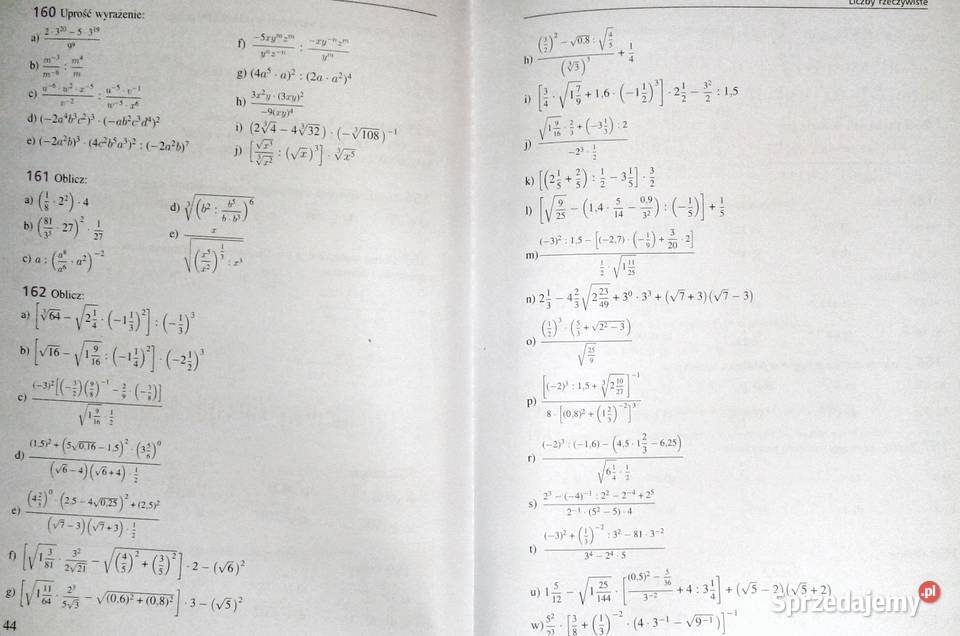 160 Uprość wyrażenie:
a) (2 · 3²⁰ − 5 · 3¹⁹)/9⁹
b) m⁻³/m⁻⁶ : m⁴/m
c) (u⁻⁶ · w² · x⁻⁵)/v⁻² : (u⁻⁵ · v⁻¹)/(w⁻⁵ · x⁶)
d) (−2a⁴b³c²)³ · (−ab²c³d⁴)²
e) (−2a²b)³ · (4c²b⁵a³)² : (−2a²b)⁷
f) (−5xyᵐzᵐ)/(yⁿz⁻ⁿ) : (−xy⁻ⁿzᵐ)/yᵐ
g) (4a⁵ · a)² : (2a · a²)⁴
h) (3x²y · (3xy)²)/(−9(xy)⁴)
i) (2∛4 − 4∛32) · (−∛108)⁻¹
j) [√x³/∛x² : (√x)³] · ∛x⁵
161 Oblicz:
a) (1/8 · 2²) · 4
b) (81/3³ · 27)² · 1/27
c) a : (a⁸/a⁶ · a²)⁻²
d) ∛(b² : b⁵/(b · b³))⁶
e) x/√((x⁵/x²)^(1/3) : x³)
162 Oblicz:
a) [∛64 − √(2 1/4) · (−1 1/3)²] : (−1/3)³
b) [√16 − √(1 9/16) : (−1 1/4)²] · (−2 1/2)³
c) ((−3)²[(−3/2)(9/8)⁻¹ − 2/9 · (−3/8)])/(√(1 9/16) · 1/2)
d) ((1,5)² + (5√0,16 − 1,5)² · (3 5/6)⁰)/((√6 − 4)(√6 + 4) · 1/2)
e) ((4 2/3)⁰ · (2,5 − 4√0,25)² + (2,5)²)/((√7 − 3)(√7 + 3) · 1/2)
f) [√(1 3/81) · 3²/(2√21) − √((4/5)² + (3/5)²)] · 2 − (√6)²
g) [√(1 11/64) · 2³/(5√3) − √((0,6)² + (0,8)²)] · 3 − (√5)²
44
Liczby rzeczywiste
h) ((3/2)² − √0,8 : √(4/5))/(∛3)³ + 1/4
i) [3/4 : √(1 7/9) + 1,6 · (−1 1/2)³] · 2 1/2 − 3²/2 : 1,5
j) (√(1 9/16) · 2/3 + (−3 1/3) : 2)/(−2³ · 1/2)
k) [(2 1/5 + 2/5) : 1/2 − 3 1/5] · 3/2
l) [√(9/25) − (1,4 · 5/14 − 0,9/3²) : (−1/5)] + 1/5
m) ((−3)² : 1,5 − [(−2,7) · (−1/9) + 3/20 · 2])/(1/2 · √(1 11/25))
n) 2 1/3 − 4 2/3 √(2 23/49) + 3⁰ · 3³ + (√7 + 3)(√7 − 3)
o) ((1/2)³ · (5/3 + √(2² − 3)))/√(25/9)
p) [(−2)³ : 1,5 + ∛(2 10/27)]⁻¹/(8 · [(0,8)² + (1 2/3)⁻²]³)
r) ((−2)³ : (−1,6) − (4,5 · 1 2/3 − 6,25))/(√(6 1/4) · 1/2)
s) (2³ − (−4)⁻¹ : 2² − 2⁻⁴ + 2⁵)/(2⁻¹ · (5² − 5) · 4)
t) ((−3)² + (1/3)⁻² : 3² − 81 · 3⁻²)/(3⁴ − 2⁴ · 5)
u) 1 5/12 − √(1 25/144) · [((0,5)² − 5/36)/3⁻² + 4 : 3 1/4] + (√5 − 2)(√5 + 2)
w) 5²/2³ · [3/8 + (1/3)⁻² · (4 · 3⁻¹ − √9⁻¹)]⁻¹
Sprzedajemy.pl